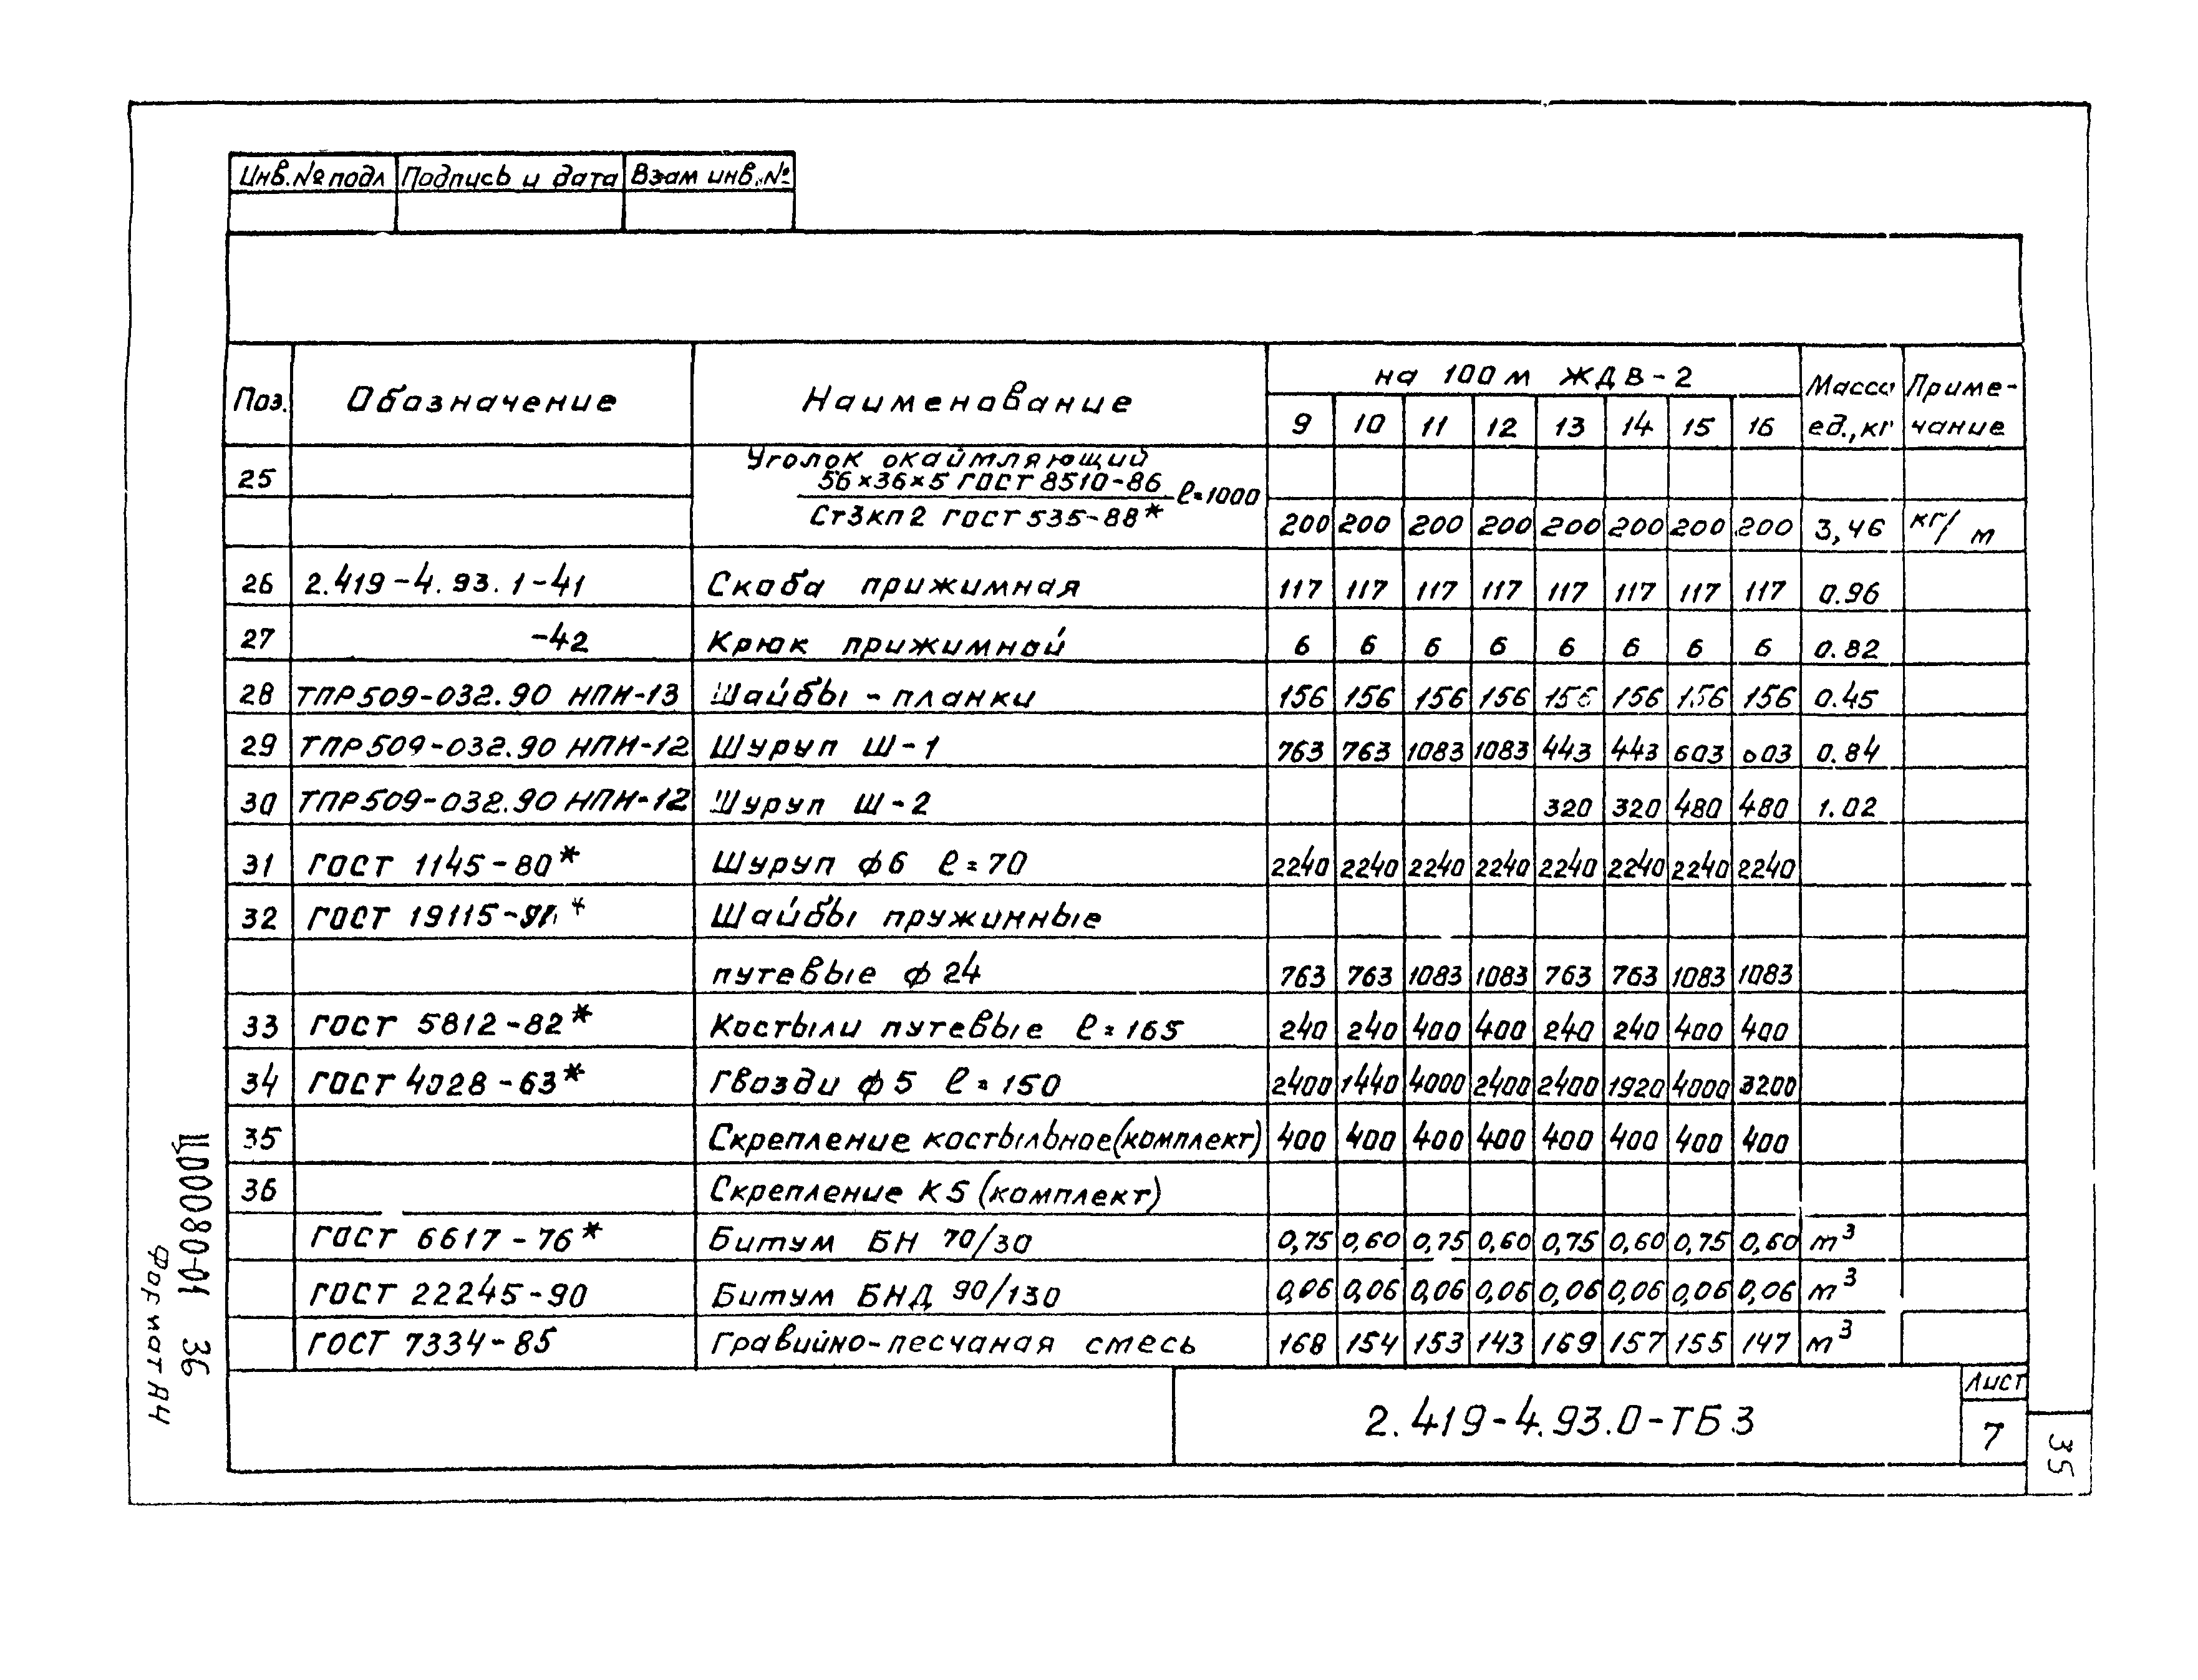 Инв.№ подл Подпись и дата Взам инв.№
Поз. Обозначение Наименование на 100 м ЖДВ-2 Масса ед.,кг Приме-чание
9 10 11 12 13 14 15 16
25 Уголок окаймляющий
56×36×5 ГОСТ 8510-86
ℓ=1000
Ст3кп2 ГОСТ 535-88*
200 200 200 200 200 200 200 200 3,46 кг/м
26 2.419-4.93.1-41 Скоба прижимная 117 117 117 117 117 117 117 117 0.96
27 -42 Крюк прижимной 6 6 6 6 6 6 6 6 0.82
28 ТПР509-032.90 НПН-13 Шайбы-планки 156 156 156 156 156 156 156 156 0.45
29 ТПР509-032.90 НПН-12 Шуруп Ш-1 763 763 1083 1083 443 443 603 603 0.84
30 ТПР509-032.90 НПН-12 Шуруп Ш-2 320 320 480 480 1.02
31 ГОСТ 1145-80* Шуруп ф6 ℓ=70 2240 2240 2240 2240 2240 2240 2240 2240
32 ГОСТ Шайбы пружинные
путевые ф24 763 763 1083 1083 763 763 1083 1083
33 ГОСТ 5812-82* Костыли путевые ℓ=165 240 240 400 400 240 240 400 400
34 ГОСТ 4028-63* Гвозди ф5 ℓ=150 2400 1440 4000 2400 2400 1920 4000 3200
35 Скрепление костыльное(комплект) 400 400 400 400 400 400 400 400
36 Скрепление К5 (комплект)
ГОСТ 6617-76* Битум БН 70/30 0,75 0,60 0,75 0,60 0,75 0,60 0,75 0,60 м³
ГОСТ 22245-90 Битум БНД 90/130 0,06 0,06 0,06 0,06 0,06 0,06 0,06 0,06 м³
ГОСТ 7334-85 Гравийно-песчаная смесь 168 154 153 143 169 157 155 147 м³
2.419-4.93.0-ТБ3
Лист
7
35
Ц00080-01 36
Формат А4